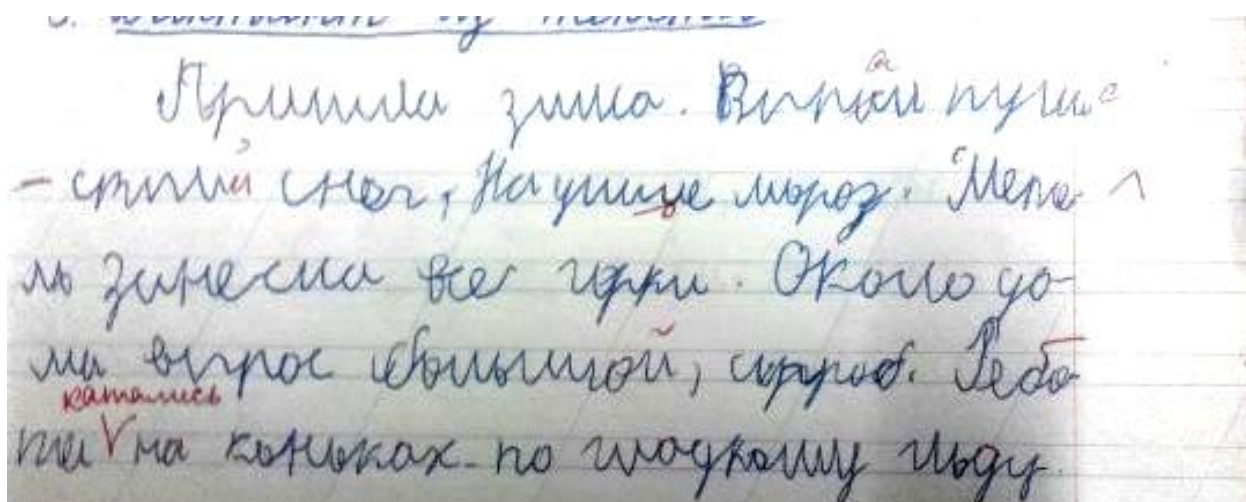 Пришла зима. Выпал пуши
- стый снег, На улице мороз. Мете
ль занесла все горки. Около до
ма вырос большой, сугроб. Ребя
та катались на коньках по гладкому льду.